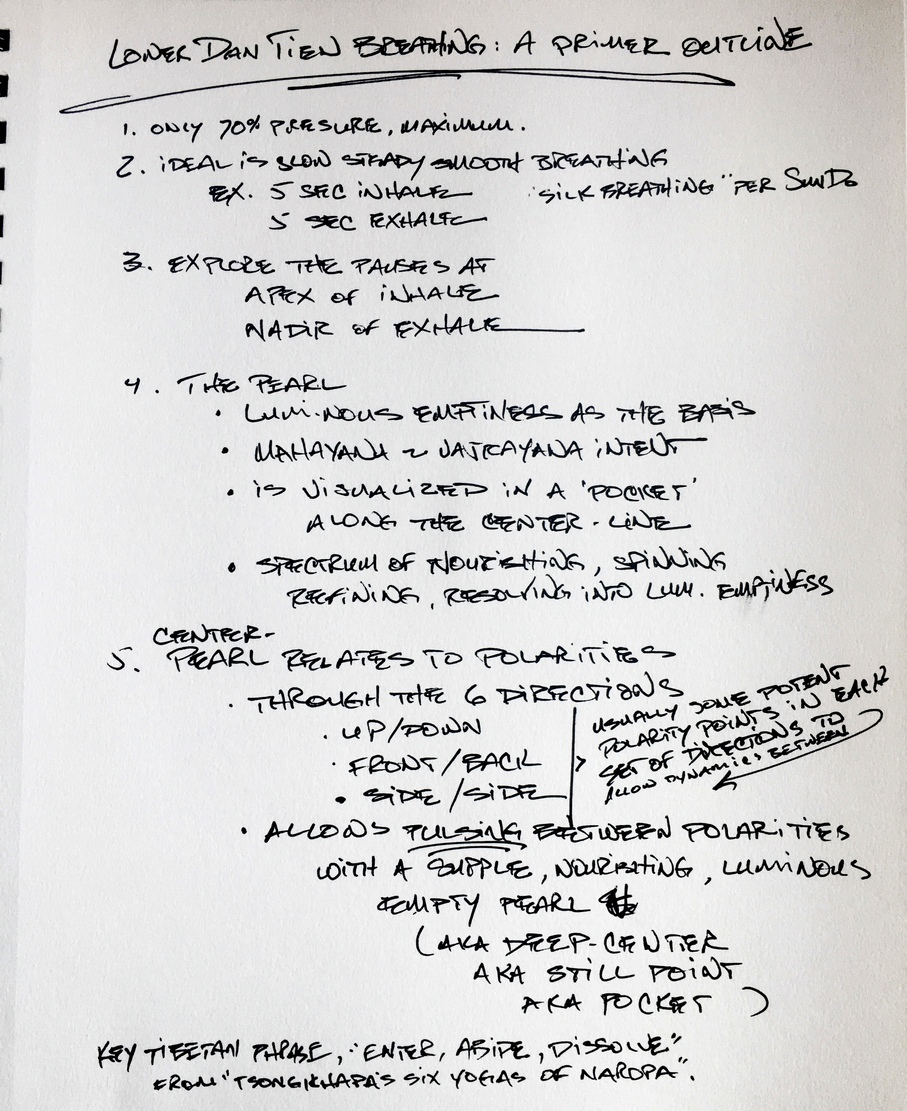 LOWER DAN TIEN BREATHING: A PRIMER OUTLINE
1. ONLY 70% PRESURE, MAXIMUM.
2. IDEAL IS SLOW STEADY SMOOTH BREATHING
EX. 5 SEC INHALE "SILK BREATHING" PER SUNDO
5 SEC EXHALE
3. EXPLORE THE PAUSES AT
APEX OF INHALE
NADIR OF EXHALE
4. THE PEARL
• LUMINOUS EMPTINESS AS THE BASIS
• MAHAYANA ~ VAJRAYANA INTENT
• IS VISUALIZED IN A 'POCKET'
ALONG THE CENTER-LINE
• SPECTRUM OF NOURISHING, SPINNING
REFINING, RESOLVING INTO LUM. EMPTINESS
CENTER-
5. PEARL RELATES TO POLARITIES
• THROUGH THE 6 DIRECTIONS
• UP/DOWN
• FRONT/BACK
• SIDE/SIDE
USUALLY SOME POTENT
POLARITY POINTS IN EACH
SET OF DIRECTIONS TO
ALLOW DYNAMICS BETWEEN
• ALLOWS PULSING BETWEEN POLARITIES
WITH A SUPPLE, NOURISHING, LUMINOUS
EMPTY PEARL
(AKA DEEP-CENTER
AKA STILL POINT
AKA POCKET)
KEY TIBETAN PHRASE, "ENTER, ABIDE, DISSOLVE"
FROM "TSONGKHAPA'S SIX YOGAS OF NAROPA".